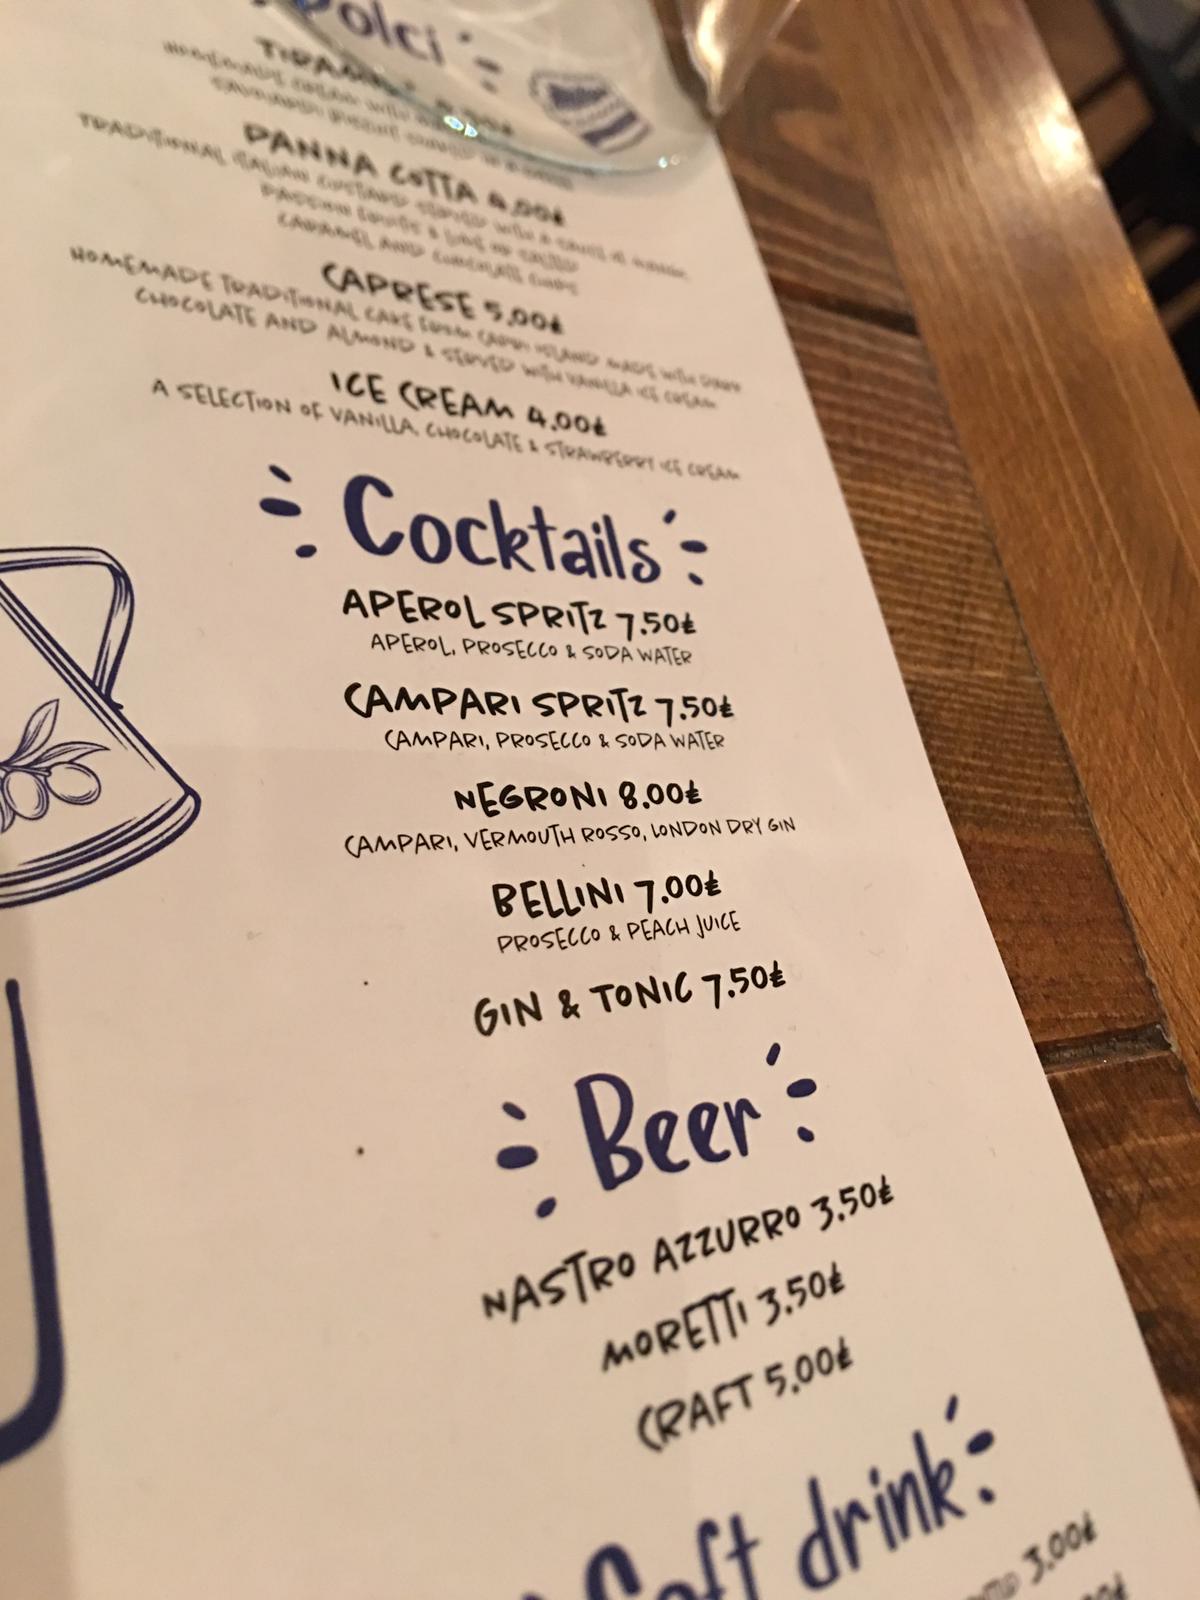 Dolci
PANNA COTTA 4.00£
TRADITIONAL ITALIAN CUSTARD SERVED WITH A SAUCE
CARAMEL AND CHOCOLATE CHIPS
CAPRESE 5.00£
HOMEMADE TRADITIONAL CAKE FROM CAPRI ISLAND MADE WITH DARK
CHOCOLATE AND ALMOND & SERVED WITH VANILLA ICE CREAM
ICE CREAM 4.00£
A SELECTION OF VANILLA, CHOCOLATE & STRAWBERRY ICE CREAM
Cocktails
APEROL SPRITZ 7.50£
APEROL, PROSECCO & SODA WATER
CAMPARI SPRITZ 7.50£
CAMPARI, PROSECCO & SODA WATER
NEGRONI 8.00£
CAMPARI, VERMOUTH ROSSO, LONDON DRY GIN
BELLINI 7.00£
PROSECCO & PEACH JUICE
GIN & TONIC 7.50£
Beer
NASTRO AZZURRO 3.50£
MORETTI 3.50£
CRAFT 5.00£
Soft drink
3.00£